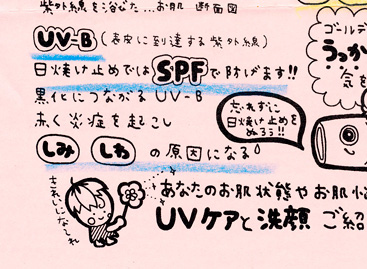 紫外線を浴びた…お肌 断面図
UV-B (表皮に到達する紫外線)
日焼け止めではSPFで防げます!!
黒化につながるUV-B
赤く炎症を起こし
しみ しわ の原因になる
ゴールデ
うっか
気を
忘れずに
日焼け止めを
ぬろう!!
きれいになぁれ
あなたのお肌状態やお肌
UVケアと洗顔 ご紹